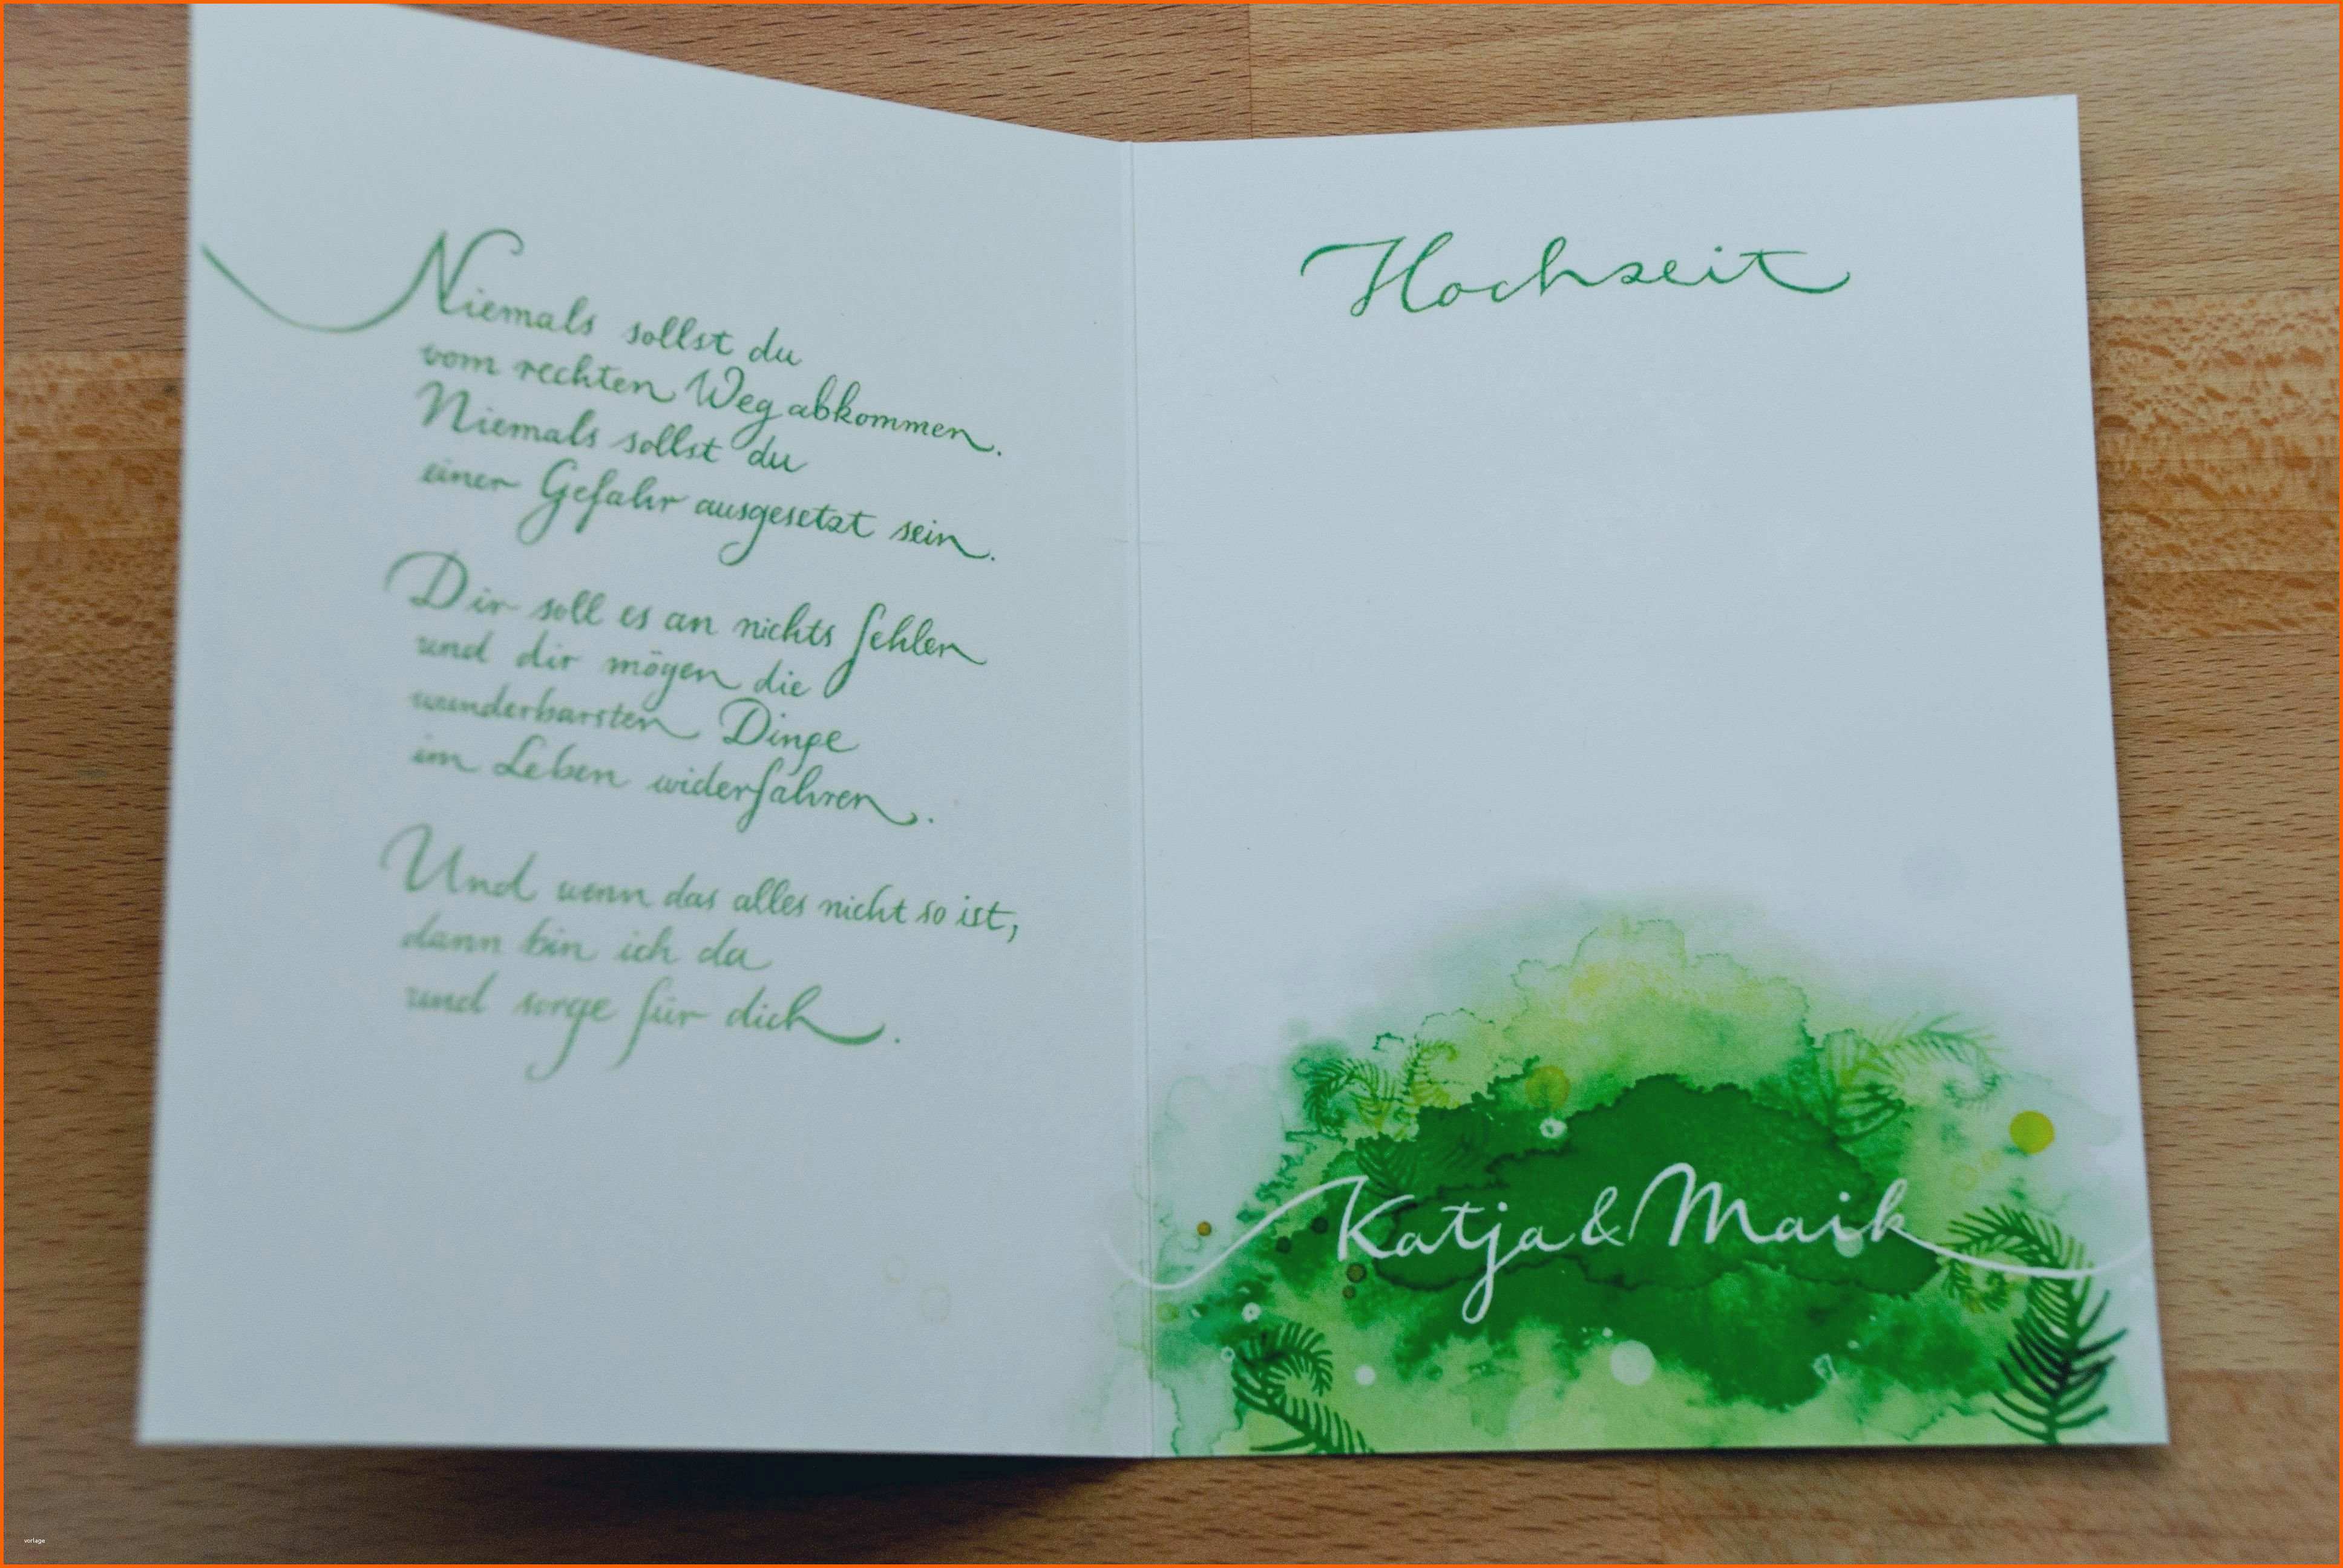 Niemals sollst du
vom rechten Weg abkommen.
Niemals sollst du
einer Gefahr ausgesetzt sein.
Dir soll es an nichts fehlen
und dir mögen die
wunderbarsten Dinge
im Leben widerfahren.
Und wenn das alles nicht so ist,
dann bin ich da
und sorge für dich.
Hochzeit
Katja & Maik
vorlage